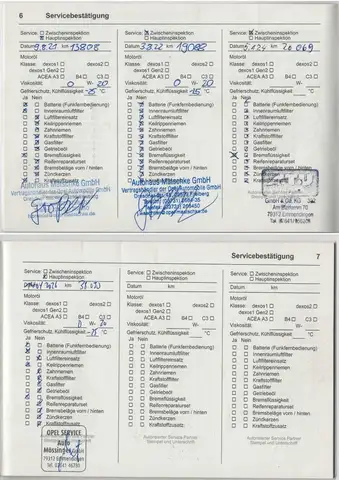 6 Servicebestätigung
Service: Zwischeninspektion
Hauptinspektion
Datum 9.8.21 km 13808
Motoröl
Klasse: dexos1 dexos2
dexos1 Gen2
ACEA-A3 B4 C3
Viskosität: 0 W- 20
Gefrierschutz, Kühlflüssigkeit -25 °C
Ja Nein
Batterie (Funkfernbedienung)
Innenraumluftfilter
Luftfiltereinsatz
Keilrippenriemen
Zahnriemen
Kraftstofffilter
Gasfilter
Getriebeöl
Bremsflüssigkeit
Reifenreparaturset
Bremsbeläge vorn / hinten
Zündkerzen
Kraftstoffzusatz
Autohaus Matschke GmbH
Service: Zwischeninspektion
Hauptinspektion
Datum km 19088
Motoröl
Klasse: dexos1 dexos2
dexos1 Gen2
ACEA-A3 B4 C3
Viskosität: 0 W- 20
Gefrierschutz, Kühlflüssigkeit °C
Ja Nein
Batterie (Funkfernbedienung)
Innenraumluftfilter
Luftfiltereinsatz
Keilrippenriemen
Zahnriemen
Kraftstofffilter
Gasfilter
Getriebeöl
Bremsflüssigkeit
Reifenreparaturset
Bremsbeläge vorn / hinten
Zündkerzen
Kraftstoffzusatz
Autohaus Matschke GmbH
Service: Zwischeninspektion
Hauptinspektion
Datum km 20 069
Motoröl
Klasse: dexos1 dexos2
dexos1 Gen2
ACEA-A3 B4 C3
Viskosität: W-
Gefrierschutz, Kühlflüssigkeit °C
Ja Nein
Batterie (Funkfernbedienung)
Innenraumluftfilter
Luftfiltereinsatz
Keilrippenriemen
Zahnriemen
Kraftstofffilter
Gasfilter
Getriebeöl
Bremsflüssigkeit
Reifenreparaturset
Bremsbeläge vorn / hinten
Zündkerzen
Kraftstoffzusatz
79312 Emmendingen
Servicebestätigung 7
Service: Zwischeninspektion
Hauptinspektion
km
Motoröl
Klasse: dexos1 dexos2
dexos1 Gen2
ACEA-A3 B4 C3
Viskosität: 0 W- 20
Gefrierschutz, Kühlflüssigkeit °C
Ja Nein
Batterie (Funkfernbedienung)
Innenraumluftfilter
Luftfiltereinsatz
Keilrippenriemen
Zahnriemen
Kraftstofffilter
Gasfilter
Getriebeöl
Bremsflüssigkeit
Reifenreparaturset
Bremsbeläge vorn / hinten
Zündkerzen
Kraftstoffzusatz
OPEL SERVICE
Auto
Mössinger
79312 Emmendingen
Service: Zwischeninspektion
Hauptinspektion
Datum km
Motoröl
Klasse: dexos1 dexos2
dexos1 Gen2
ACEA-A3 B4 C3
Viskosität: W-
Gefrierschutz, Kühlflüssigkeit °C
Ja Nein
Batterie (Funkfernbedienung)
Innenraumluftfilter
Luftfiltereinsatz
Keilrippenriemen
Zahnriemen
Kraftstofffilter
Gasfilter
Getriebeöl
Bremsflüssigkeit
Reifenreparaturset
Bremsbeläge vorn / hinten
Zündkerzen
Kraftstoffzusatz
Autorisierter Service-Partner
Stempel und Unterschrift
Service: Zwischeninspektion
Hauptinspektion
Datum km
Motoröl
Klasse: dexos1 dexos2
dexos1 Gen2
ACEA-A3 B4 C3
Viskosität: W-
Gefrierschutz, Kühlflüssigkeit °C
Ja Nein
Batterie (Funkfernbedienung)
Innenraumluftfilter
Luftfiltereinsatz
Keilrippenriemen
Zahnriemen
Kraftstofffilter
Gasfilter
Getriebeöl
Bremsflüssigkeit
Reifenreparaturset
Bremsbeläge vorn / hinten
Zündkerzen
Kraftstoffzusatz
Autorisierter Service-Partner
Stempel und Unterschrift